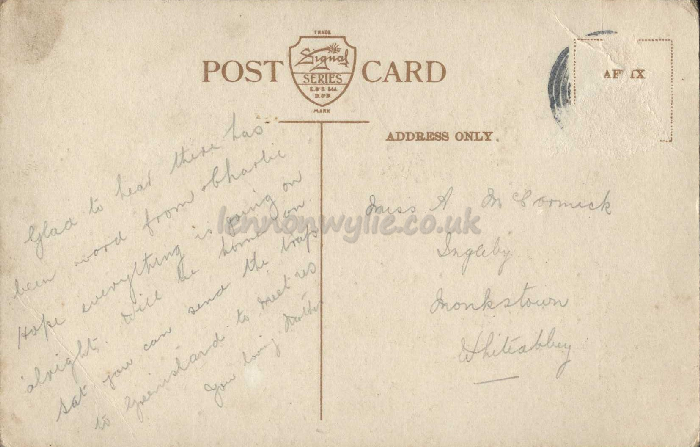 TRADE
Signal
SERIES
E. & S. Ltd.
DUB
MARK
POST CARD
AFFIX
ADDRESS ONLY.
Glad to hear there has
been word from Charlie
Hope everything is going on
alright. Will be home on
Sat you can send the trap
to Greenisland to meet us
Your loving Mother
Miss A McCormick
Ingleby
Monkstown
Whiteabbey
lennonwylie.co.uk